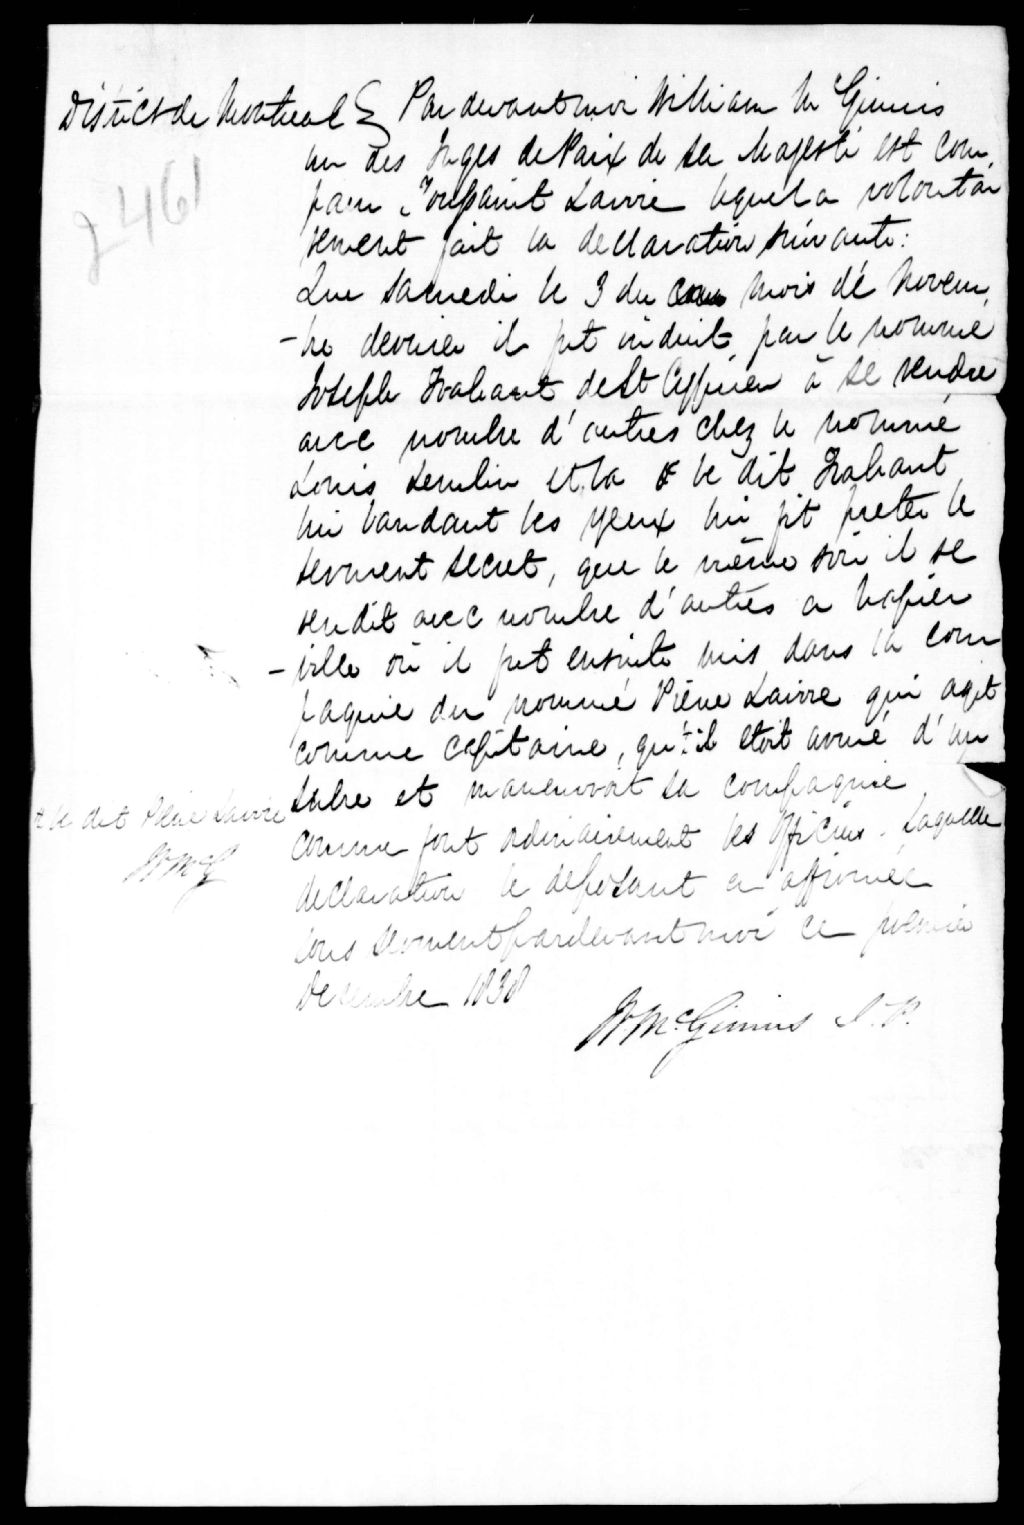 District de Montreal } Par devant moi William Mc Ginnis
un des Juges de Paix de Sa Majesté est com,
paru Toussaint Lavoie lequel a volontai
rement fait la declaration suivante:
2461
Que Samedi le 3 du mois de Novem,
-bre dernier il fut induit par le nommé
Joseph Trahant de St Cyprien à se rendre
avec nombre d'autres chez le nommé
Louis et la le dit Trahant
lui bandant les yeux lui fit preter le
serment secret, que le même soir il se
rendit avec nombre d'autres a Napier
-ville où il fut ensuite mis dans la com
pagnie du nommé Piérre Lavoie qui agit
comme capitaine, qu'+il etoit armé d'un
sabre et manœuvroit sa compagnie
+ le dit Piérre Lavoie
W McG
comme font ordinairement les Officiers. Laquelle
declaration le déposant a affirmée
sous serment pardevant moi ce premier
Decembre 1838
W. McGinnis J. P.